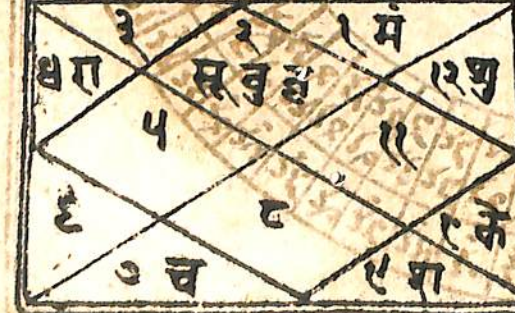 ३ २ १ मं
४ रा सू बु बृ १२ शु
५ ११
६ ८ १ के
७ च ९ श